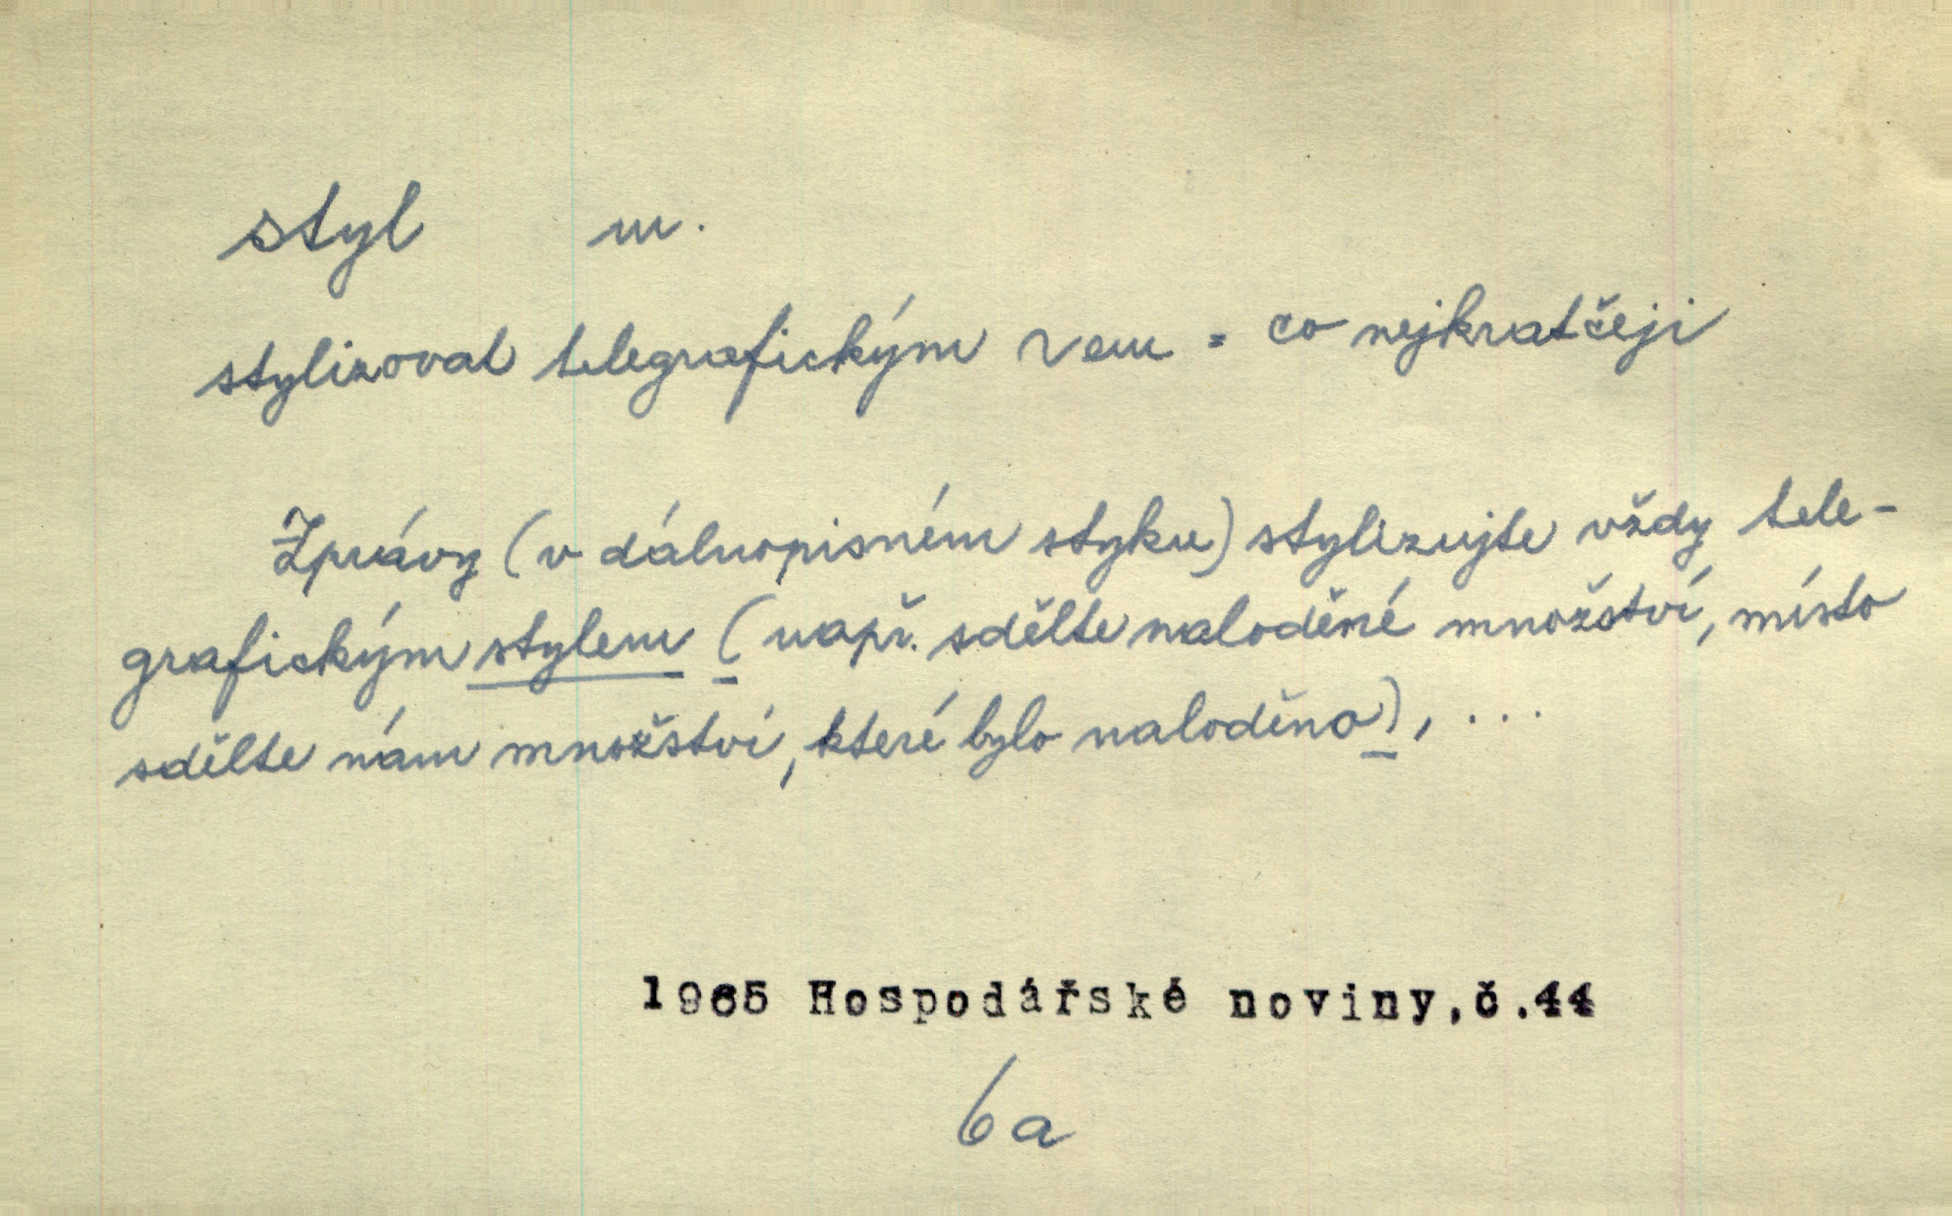 styl m.
stylizovat telegrafickým ~em = co nejkratčeji
Zprávy (v dálnopisném styku) stylizujte vždy tele-
grafickým stylem (např. sdělte naloděné množství, místo
sdělte nám množství, které bylo naloděno), ...
1965 Hospodářské noviny, č.44
6a